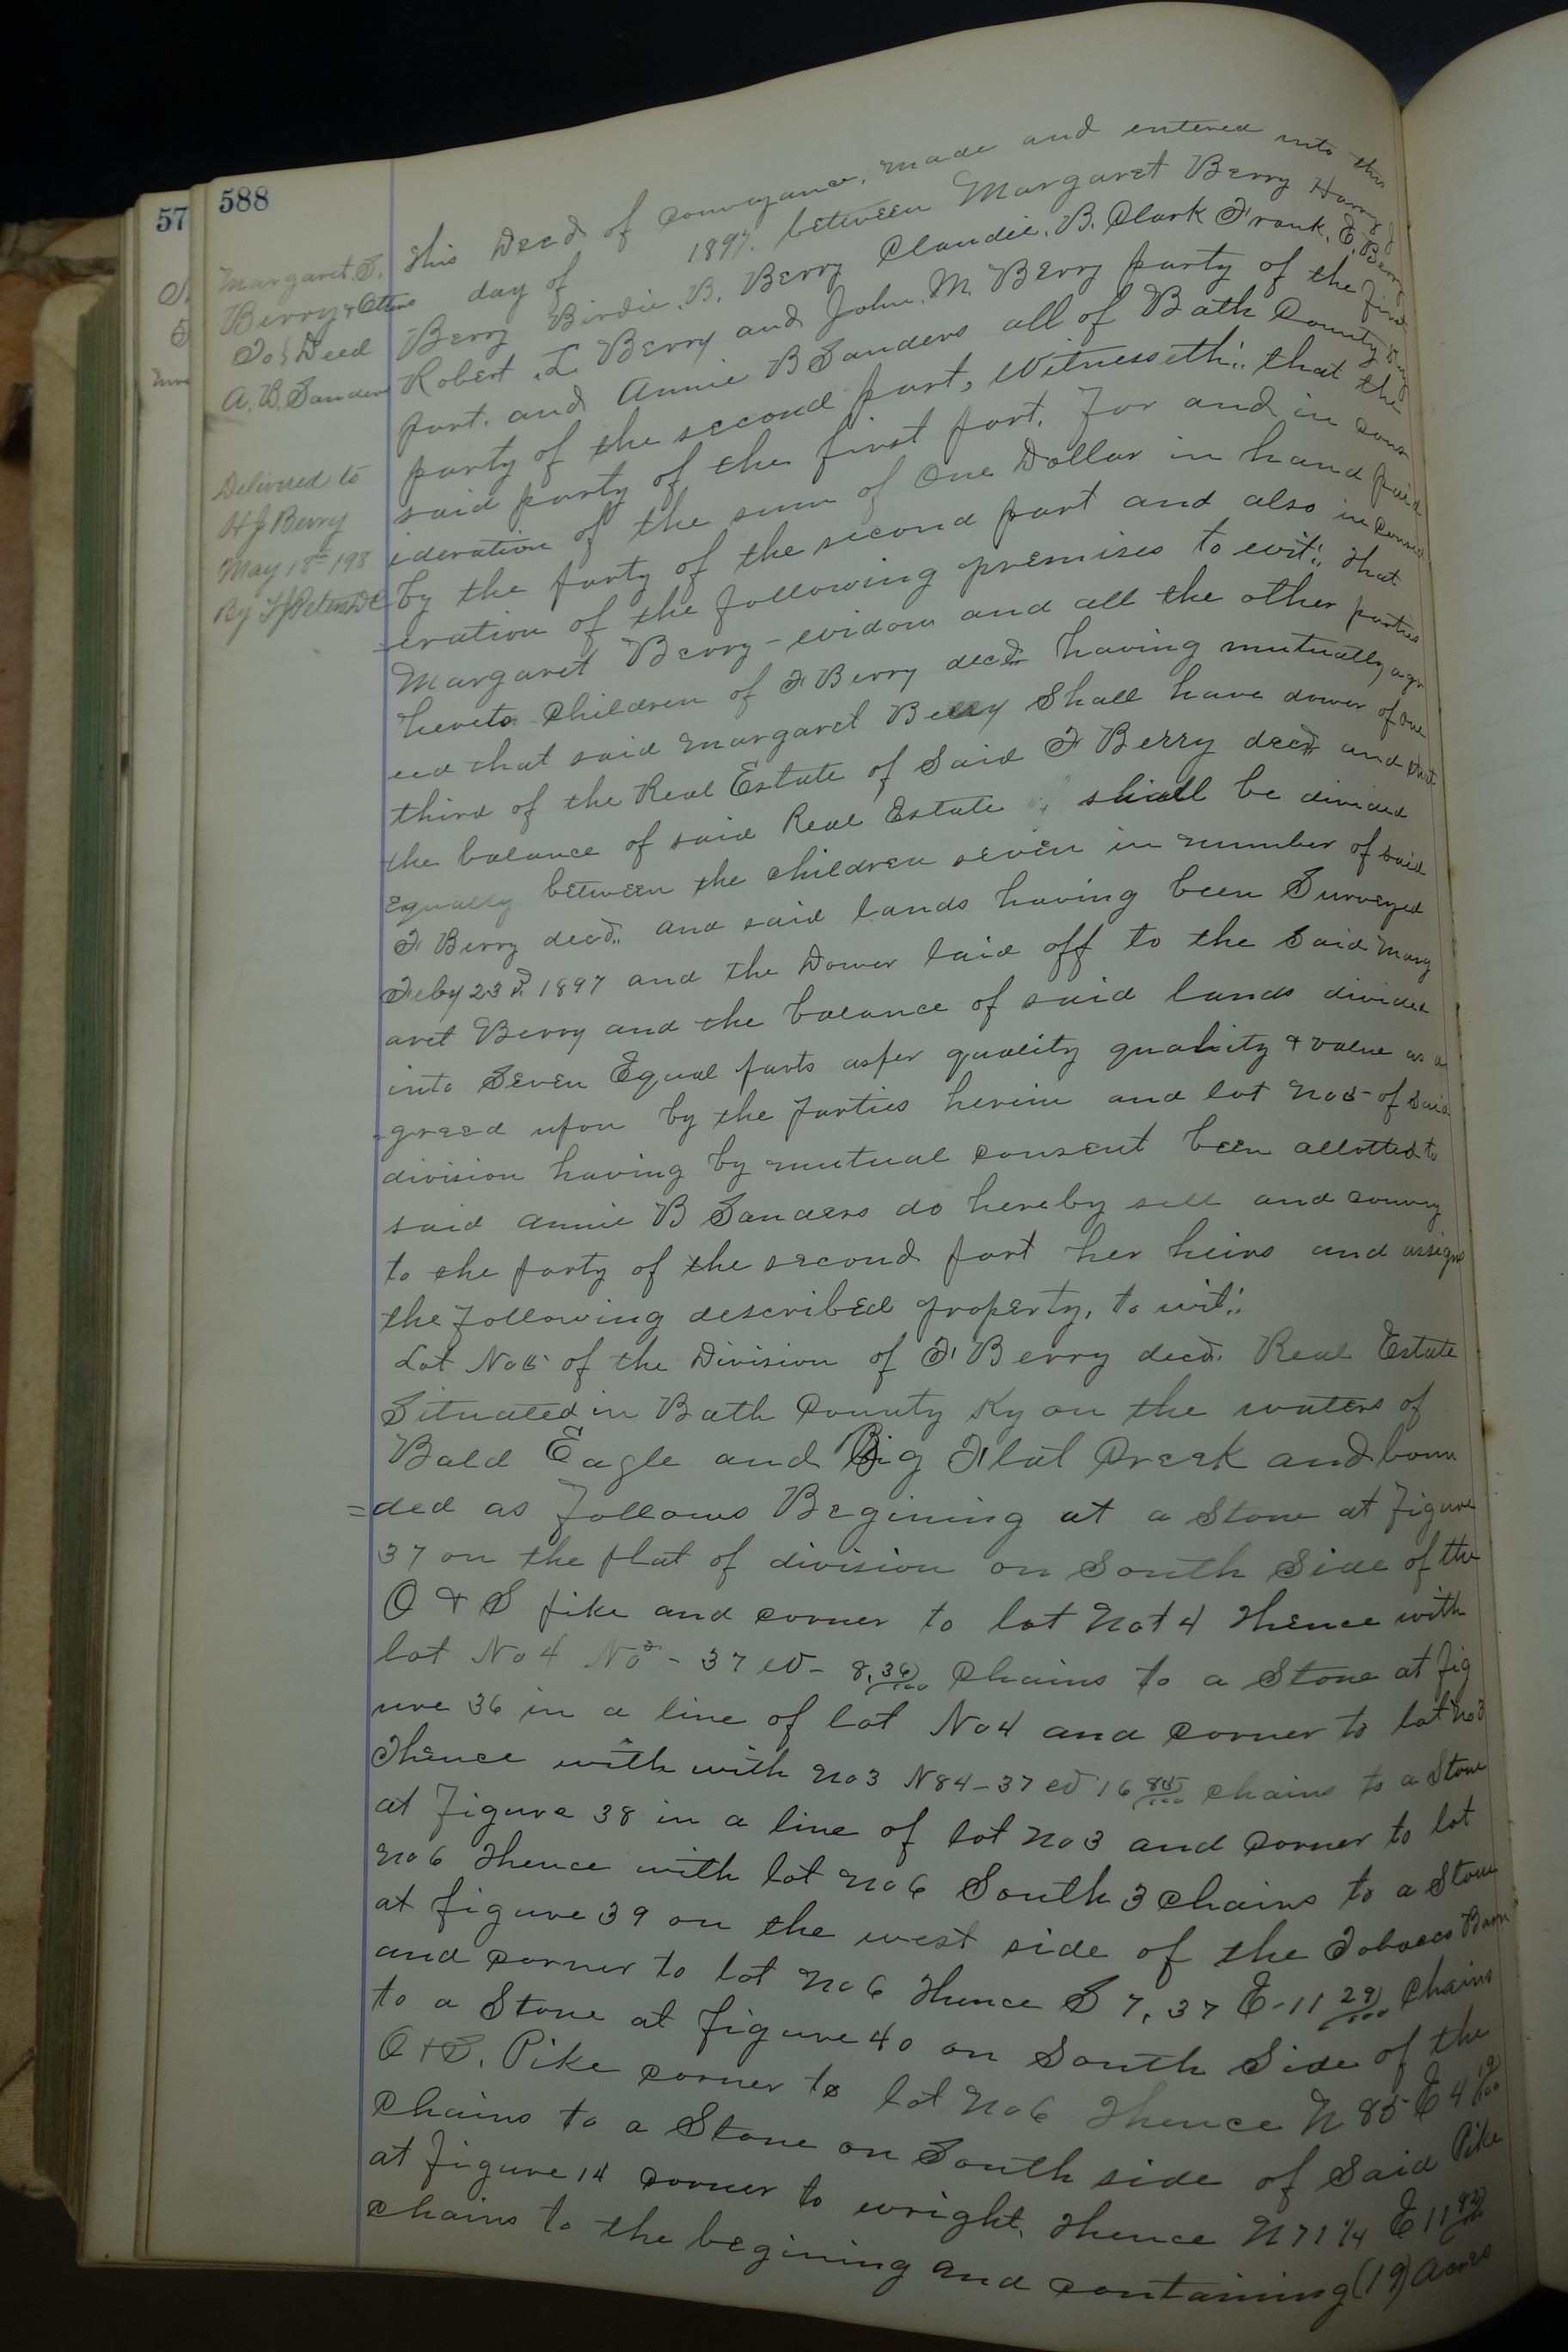 57
588
Margaret S.
Berry & Others
To } Deed
A. B. Sanders
Delivered to
H J Berry
May 18th 198
By
This Deed of Conveyance, made and entered into this
day of 1897. between Margaret Berry Harry J
Berry Birdie. B. Berry Claudie. B. Clark Frank. E. Berry
Robert L Berry and John. M. Berry party of the first
part. and Annie B Sanders all of Bath County Ky
party of the second part, Witnesseth:. that the
said party of the first part. for and in cons
ideration of the sum of One Dollar in hand paid
by the party of the second part and also in consid
=eration of the following premises to wit:. that
Margaret Berry - widow and all the other parties
hereto Children of F Berry decd. having mutually agr
eed that said Margaret Berry Shall have dower of one
third of the Real Estate of Said F Berry decd and that
the balance of said Real Estate shall be divided
Equally between the children seven in number of said
F Berry decd.. and said lands having been Surveyed
Feby 23d. 1897 and the Dower laid off to the Said Marg
aret Berry and the balance of said lands divided
into Seven Equal parts asper quality quality & value as a
-greed upon by the parties herein and lot No 5 of Said
division having by mutual consent been allotted to
said Annie B Sanders do hereby sell and convey
to the party of the second part her heirs and assigns
the following described property, to wit:.
Lot No 5 of the Division of F Berry decd. Real Estate
Situated in Bath County Ky on the waters of
Bald Eagle and Big Flat Creek and boun
=ded as follows Begining at a Stone at figure
37 on the plat of division on South Side of the
O & S pike and corner to lot Not 4 Thence with
lot No 4 No - 37 W - 8.36/100 Chains to a Stone at fig
ure 36 in a line of lot No 4 and Corner to lot No 3
Thence with with No 3 N 84 - 37 W 16 85/100 chains to a Stone
at figure 38 in a line of lot No 3 and Corner to lot
No 6 Thence with lot No 6 South 3 Chains to a Stone
at figure 39 on the west side of the Tobacco Barn
and corner to lot No 6 Thence S 7, 37 E - 11 29/100 Chains
to a Stone at figure 40 on South Side of the
O & S. Pike corner to lot No 6 Thence N 85 E 4 19/100
Chains to a Stone on South side of Said Pike
at figure 14 corner to wright, Thence N 71 1/4 E 11 82/100
chains to the begining and containing (19) Acres